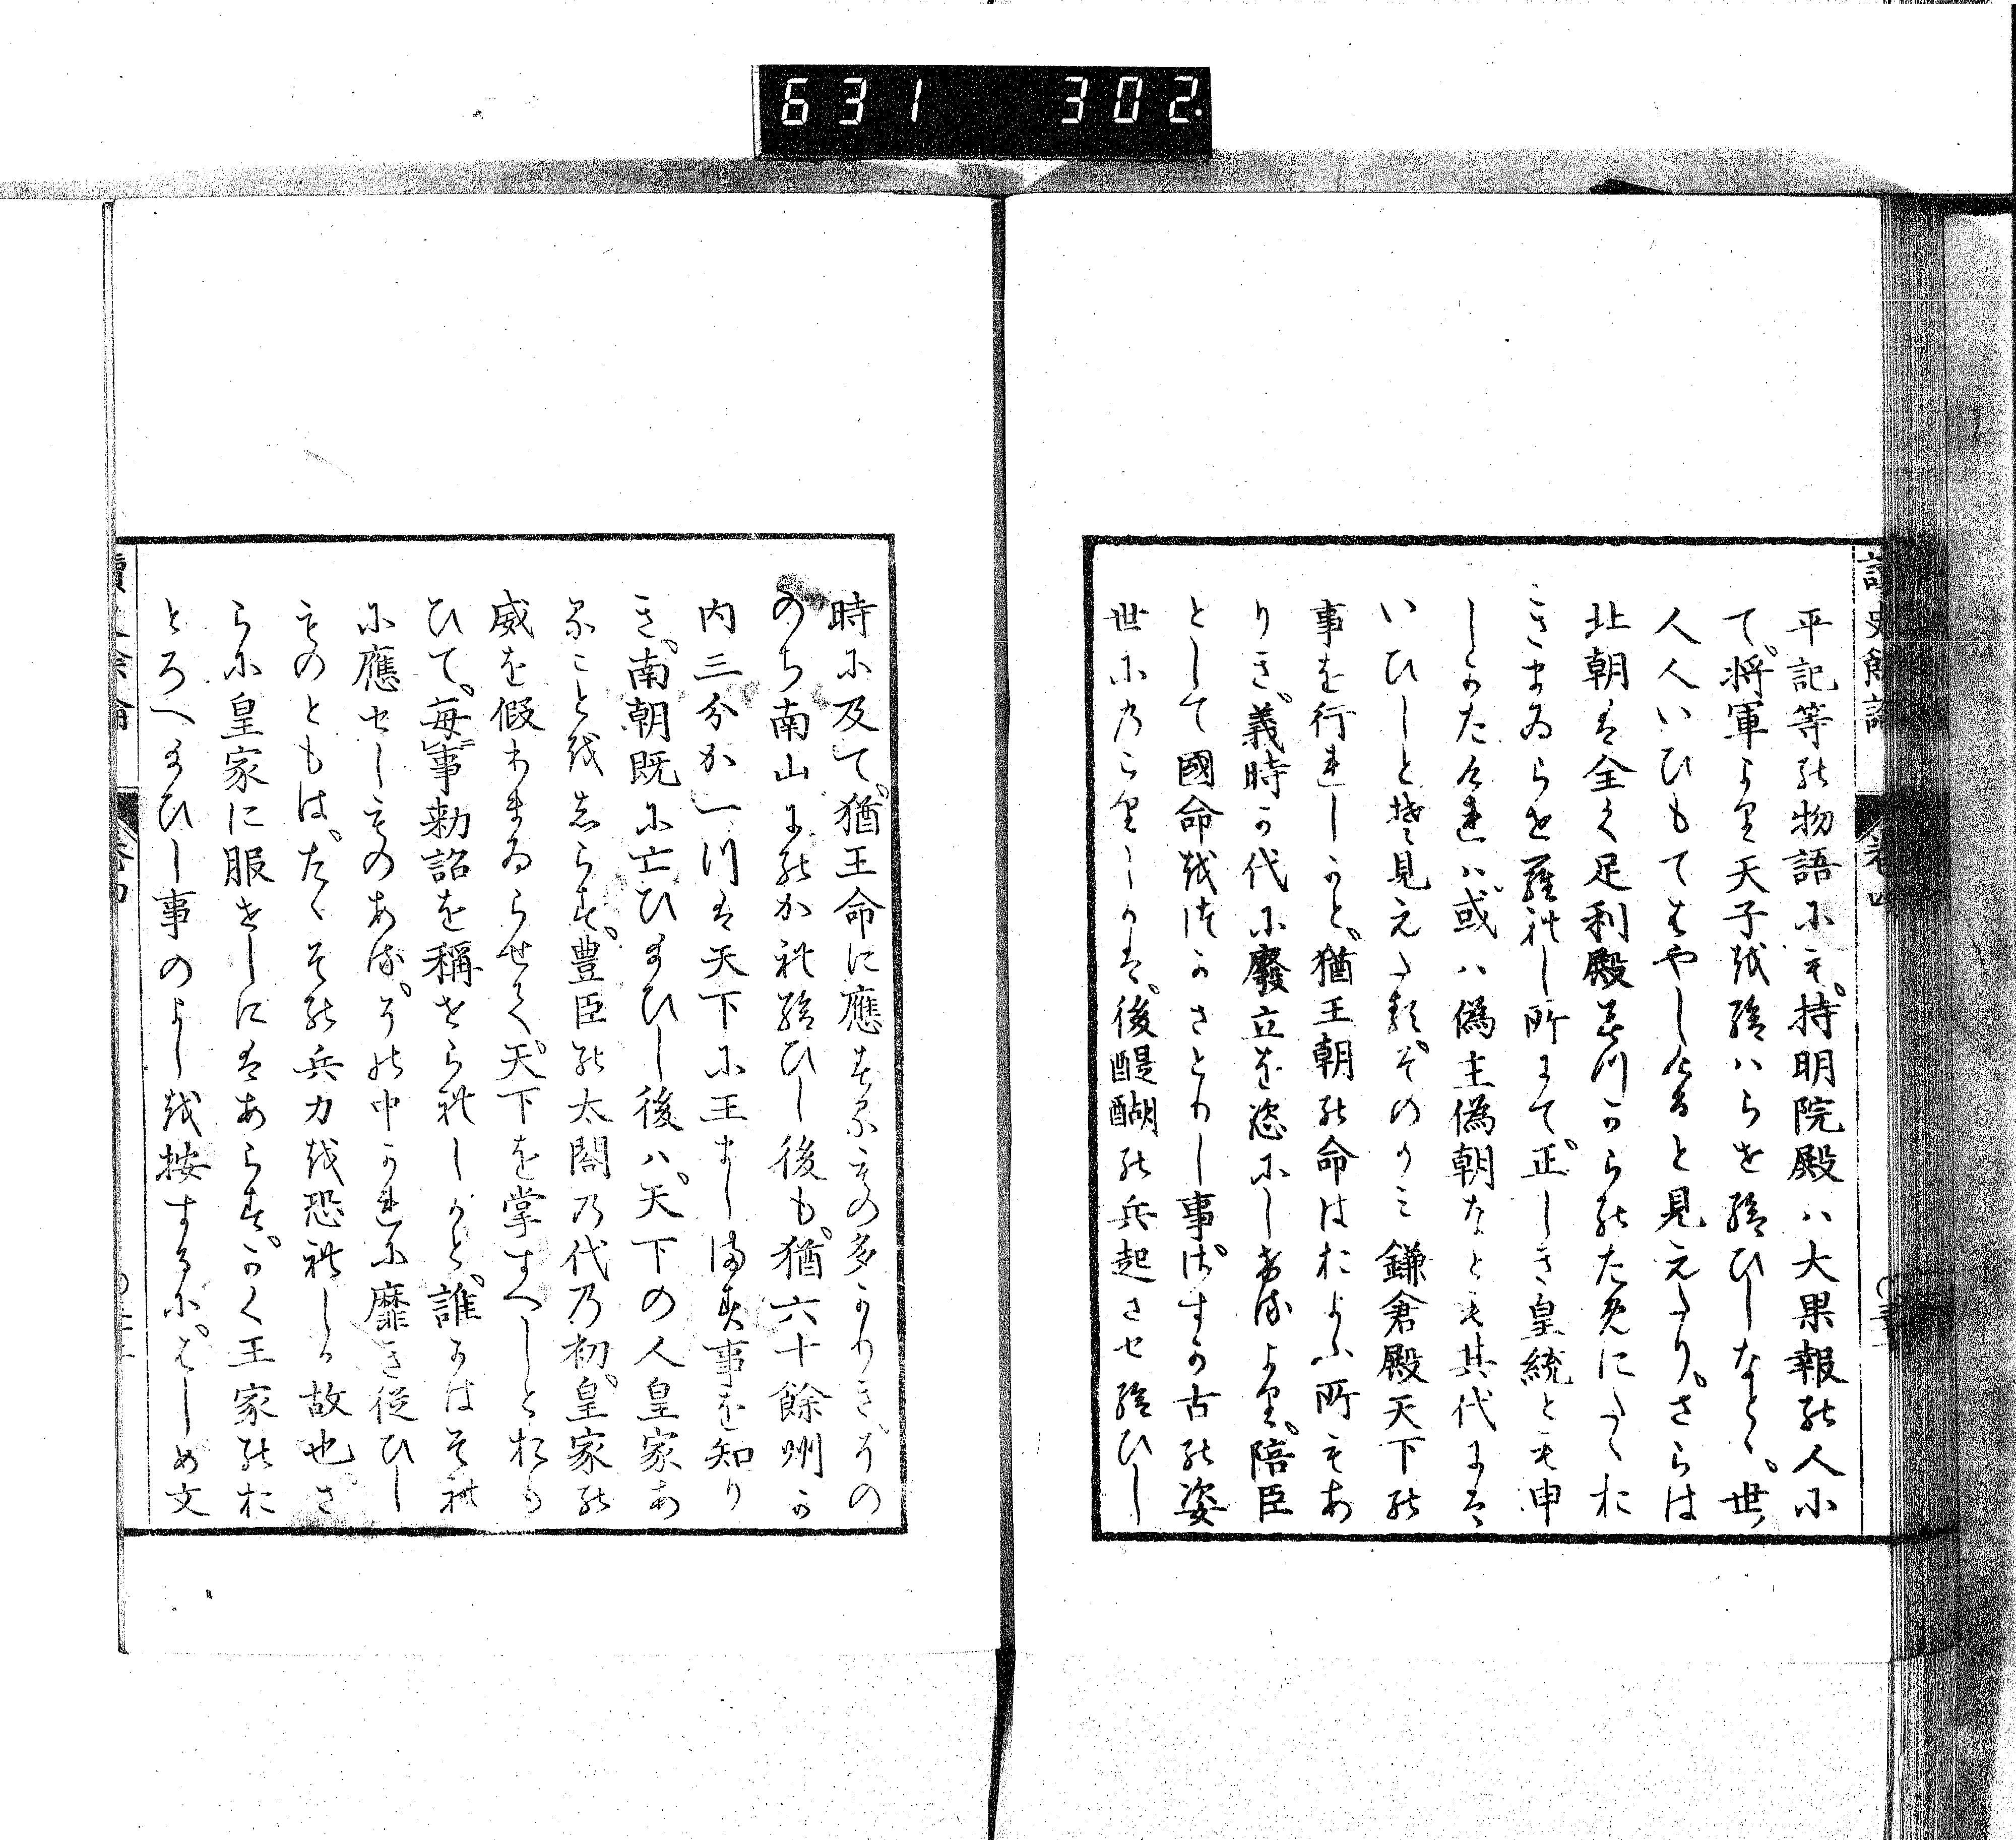 631 302
讀史餘論 卷四
平記等の物語にも。持明院殿ハ大果報の人に
て。将軍より天子を給ハらせ給ひしなと。世の
人人いひもてはやしけると見えたり。さらは
北朝は全く足利殿みつからのためにたてお
きまゐらせられし所にて。正しき皇統とも申
しかたけれハ。或ハ偽主偽朝なとも其代には
いひしと見えたり。そのかミ鎌倉殿天下の
事を行れしかと。猶王朝の命はおよふ所もあ
りき。義時か代に廢立を恣にしけるより。陪臣
として國命をつかさとりし事。すか古の姿
世にのこりしかは。後醍醐の兵起させ給ひし
時に及て。猶王命に應するもの多かりき。その
のち南山にのかれ給ひし後も。猶六十餘州か
内三分か一つは天下に王まします事を知り
き。南朝既に亡ひ給ひし後ハ。天下の人皇家あ
ることをしらす。豊臣の太閤の代の初。皇家の
威を假りまゐらせて。天下を掌すへしとおも
ひて。毎事勅詔を稱せられしかと。誰かはそれ
に應せしものある。その中かれに靡き從ひし
ものともは。たゝその兵力を恐れしか故也。さ
らに皇家に服せしにはあらす。かく王家のお
とろへ給ひし事のよしを按するに。はしめ文